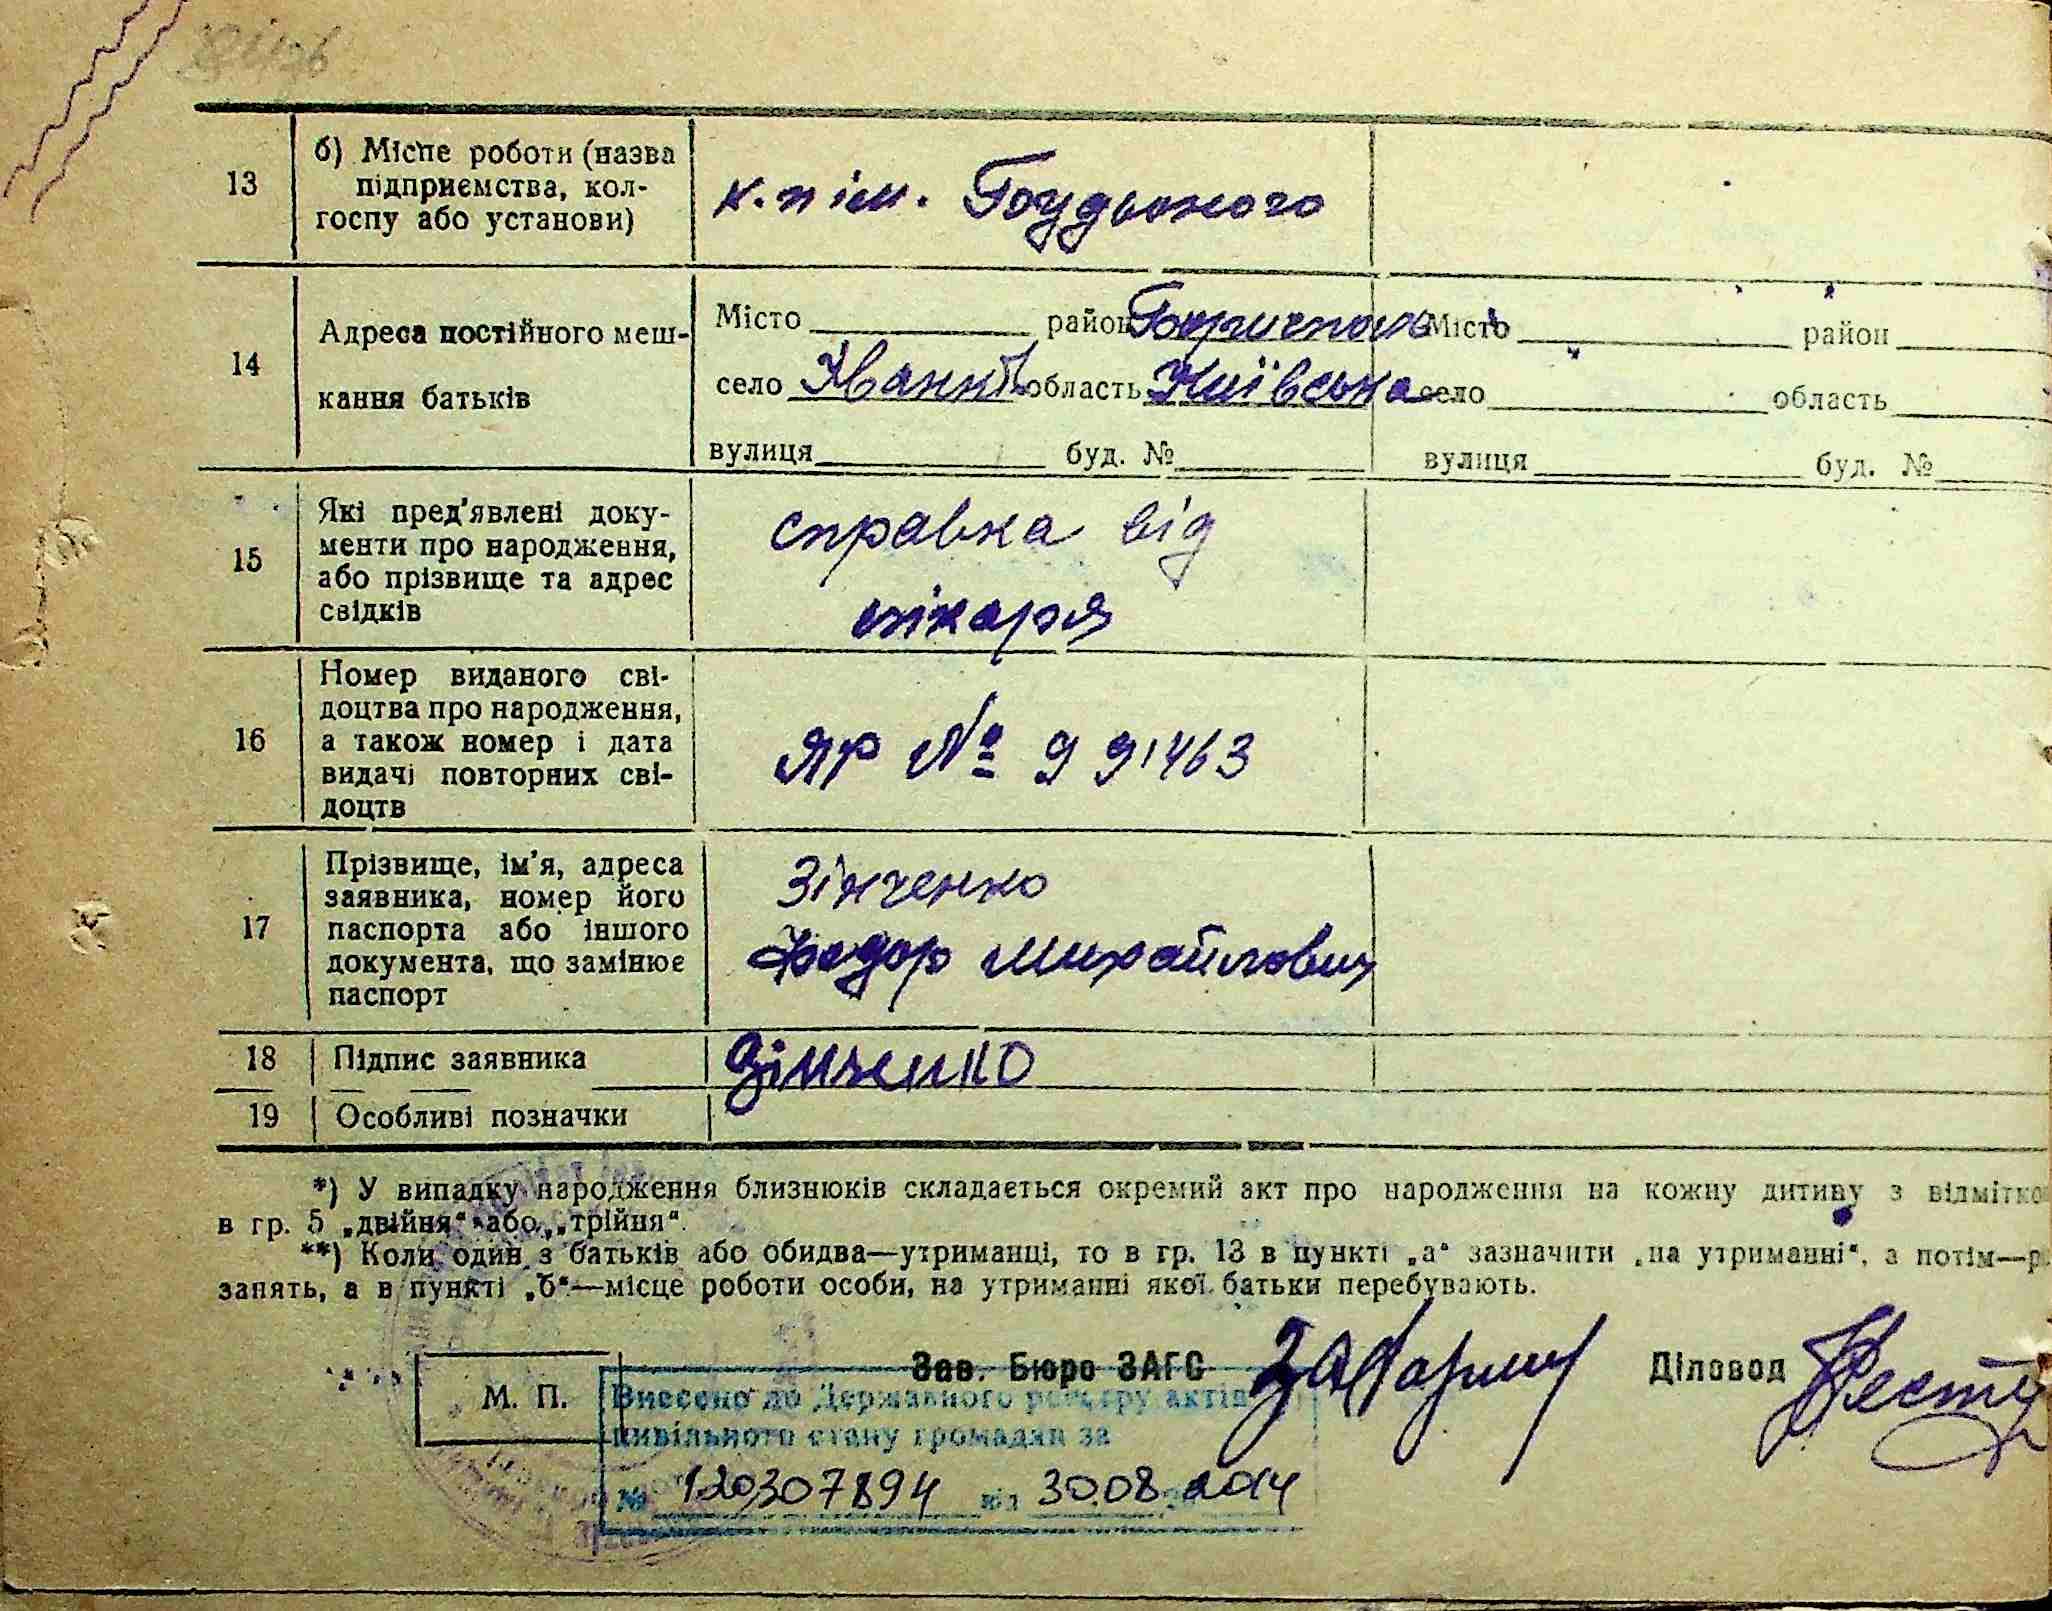 13
б) Місце роботи (назва
підприємства, кол-
госпу або установи)
к.п ім. Будьоного
14
Адреса постійного меш-
кання батьків
Місто район Бориспольс Місто район
село Іванків область Київська село область
вулиця буд. № вулиця буд. №
15
Які пред'явлені доку-
менти про народження,
або прізвище та адрес
свідків
справка від
лікаря
16
Номер виданого сві-
доцтва про народження,
а також номер і дата
видачі повторних сві-
доцтв
ЯР № 991463
17
Прізвище, ім'я, адреса
заявника, номер його
паспорта або іншого
документа, що замінює
паспорт
Зінченко
Федор Михайлович
18 Підпис заявника Зінченко
19 Особливі позначки
*) У випадку народження близнюків складається окремий акт про народження на кожну дитину з відмітко
в гр. 5 „двійня“ або „трійня“.
**) Коли один з батьків або обидва—утриманці, то в гр. 13 в пункті „а“ зазначити „на утриманні“, а потім—р
занять, а в пункті „б“—місце роботи особи, на утриманні якої батьки перебувають.
Зав. Бюро ЗАГС Діловод
М. П.
Внесено до Державного реєстру актів
цивільного стану громадян за
№ 120307894 від 30.08.2014